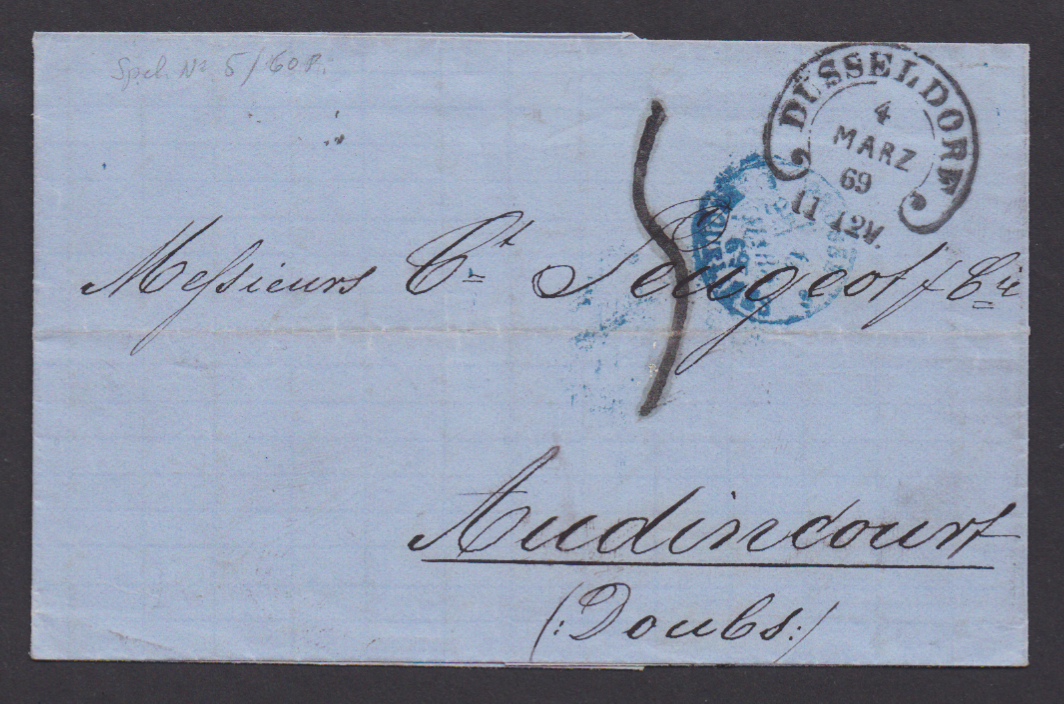 Spel. No 5/60 P.
DUSSELDORF
4
MARZ
69
11 12V.
Messieurs Ct. Peugeot & Cie
Audincourt
(:Doubs:)